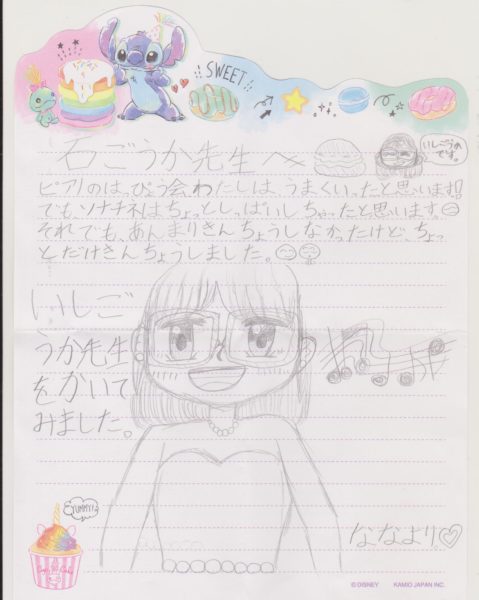 SWEET
石ごうか先生へ
いしごうか
です。
ピアノのはっぴょう会わたしは、うまくいったと思います!!
でも、ソナチネはちょっとしっぱいしちゃったと思います
それでも、あんまりきんちょうしなかったけど、ちょっ
とだけきんちょうしました。
いしご
うか先生
をかいて
みました。
YUMMY!
ななより。
©DISNEY KAMIO JAPAN INC.